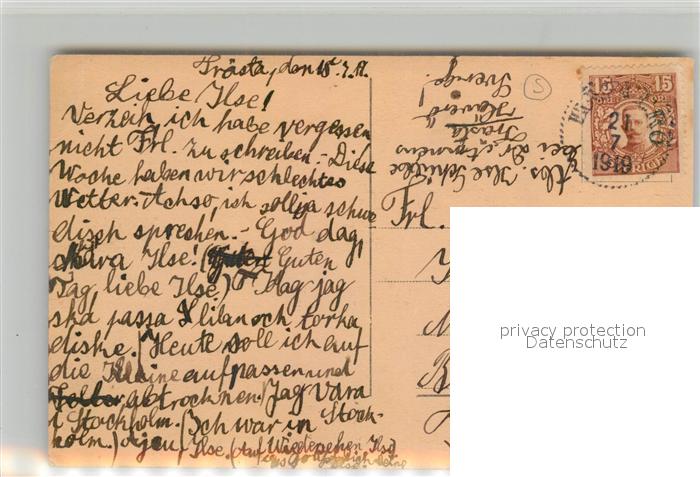 Trästa, den 15.7.19.
Liebe Ilse!
Verzeih, ich habe vergessen
nicht Frl. zu schreiben.- Diese
Woche haben wir schlechtes
Wetter. Achso, ich soll ja schwe
disch sprechen.- God dag,
Kära Ilse! (Guten
Tag, liebe Ilse.) Idag jag
ska passa Lilian och torka
diske. (Heute soll ich auf
die Kleine aufpassen und
abtrocknen.) Jag vara
i Stockholm. (Ich war in Stock-
holm.) Ajeu, Ilse. (Auf Wiedersehen Ilse)
Abs. Ilse
bei
Sverige!
S
15 15
21
7
1919
Frl.
privacy protection
Datenschutz